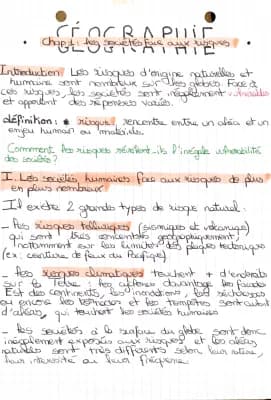 GÉOGRAPHIE
Chap 1 : Les sociétés face aux risques
Introduction : Les risques d'origine naturelles et
humaine sont nombreux sur les globes. Face à
ces risques les sociétés sont inégalement vulnérables
et apportent des réponses variés.
définition : risque, rencontre entre un aléas et un
enjeu humain ou matériels.
Comment les risques révèlent-ils l'inégale vulnérabilité
des sociétés ?
I. Les sociétés humaines face aux risques de plus
en plus nombreux
Il existe 2 grands types de risque naturel :
- Les risques telluriques (sismiques et volcanique)
qui sont très concentrés géographiquement,
notamment sur les limites des plaques tectoniques
(ex : ceinture de feux du Pacifique).
- Les risques climatiques touchent + d'endroits
sur la Terre : les cyclones davantage les façades
Est des continents, les inondations, les sécheresses
ou encore les tornades et les tempêtes sont autant
d'aléas, qui touchent les sociétés humaines
- Les sociétés à la surface du globe sont donc
inégalement exposées aux risques et les aléas
naturelles sont très différents selon leur nature,
leur intensité ou leur fréquence.